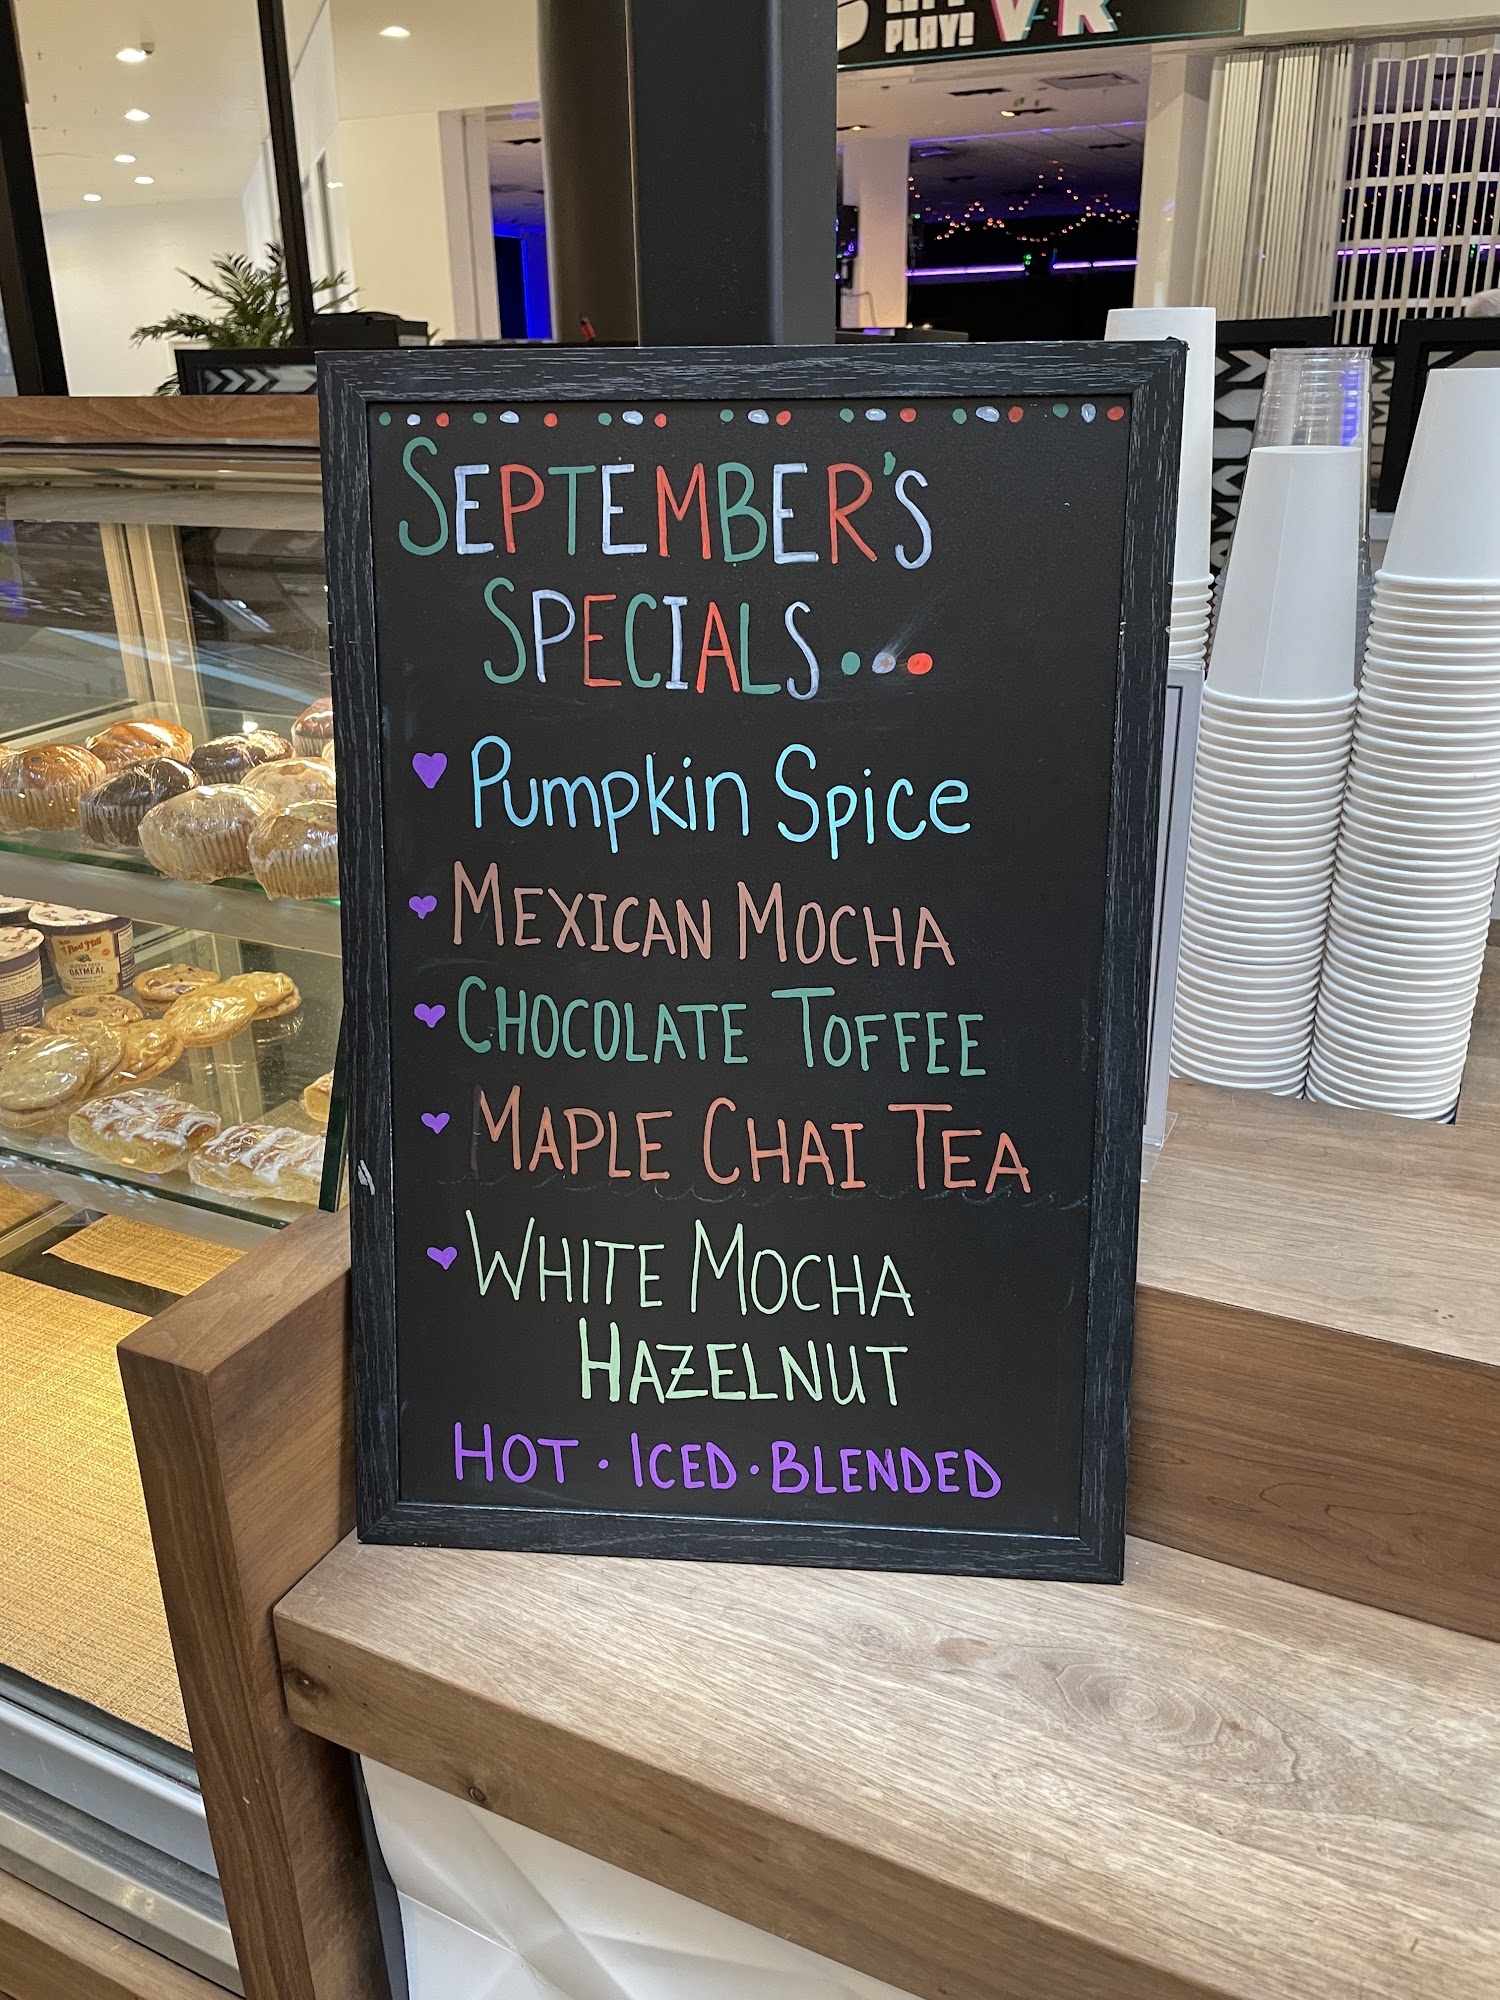 PLAY!
VR
SEPTEMBER'S
SPECIALS...
Pumpkin Spice
MEXICAN MOCHA
CHOCOLATE TOFFEE
MAPLE CHAI TEA
WHITE MOCHA
HAZELNUT
HOT · ICED · BLENDED
Red Mill
OATMEAL